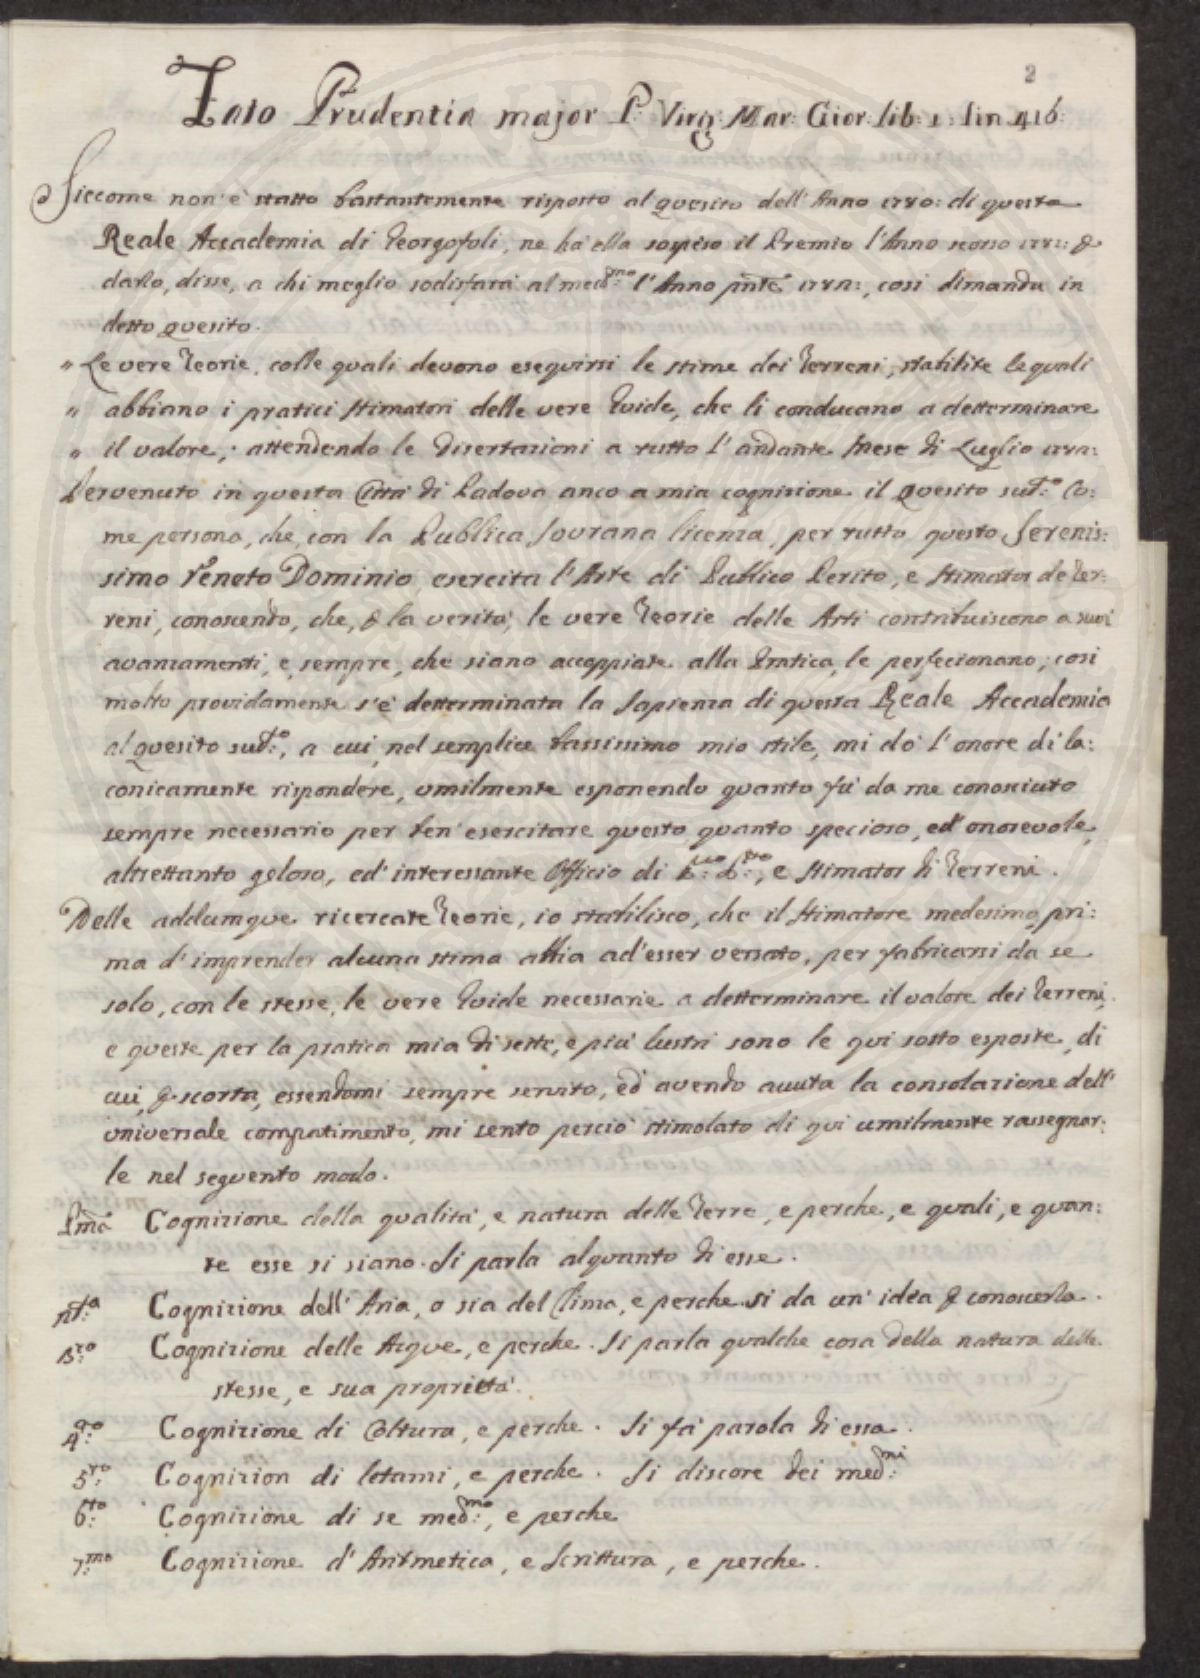 2
Fato Prudentia major P. Virg: Mar: Gior: lib: 1: lin. 416:
Siccome non è statto bastantemente risposto al quesito dell'Anno 1780: di questa
Reale Accademia di Georgofoli, ne hà ella sospeso il Premio l'Anno scorso 1781: &
darlo, disse, a chi meglio sodisfarà al med:mo l'Anno pnte 1782:, così dimanda in
detto quesito.
" Le vere Teorie, colle quali devono eseguirsi le stime dei Terreni, stabilite le quali
" abbiano i pratici stimatori delle vere Guide, che li conducano a detterminare
" il valore; attendendo le Disertazioni a tutto l'andante Mese di Luglio 1782:
Pervenuto in questa Città di Padova anco a mia cognizione il quesito sud:to Co:
me persona, che, con la Publica Sovrana licenza, per tutto questo Serenis:
simo Veneto Dominio, esercita l'Arte di Publico Perito, e Stimator de Ter:
reni, conoscendo, che, & la verità, le vere Teorie delle Arti contribuiscono a suoi
avanzamenti, e, sempre, che siano accoppiate alla Pratica, le perfecionano, così
molto providamente s'è detterminata la Sapienza di questa Reale Accademia
al quesito sud:to, a cui, nel semplice bassissimo mio stile, mi dò l'onore di la:
conicamente rispondere, umilmente esponendo quanto fù da me conosciuto
sempre necessario per ben'esercitare questo, quanto specioso, ed'onorevole,
altrettanto geloso, ed'interessante Officio di P:co P:to, e Stimator di Terreni.
Delle addumque ricercate Teorie, io stabilisco, che il Stimatore medesimo, pri:
ma d'imprender alcuna stima abbia ad'esser versato, per fabricarsi da se
solo, con le stesse, le vere Guide necessarie a detterminare il valore dei Terreni,
e queste per la pratica mia di sette, e più lustri sono le qui sotto esposte, di
cui, & scorta, essendomi sempre servito, ed avendo avuta la consolazione dell'
universale compatimento, mi sento perciò stimolato di qui umilmente rassegnar:
le nel seguento modo.
Pma Cognizione della qualità, e natura delle Terre, e perche, e quali, e quan:
te esse si siano. Si parla alquanto di esse.
2:da Cognizione dell'Aria, o sia del Clima, e perche si da un'idea & conoscerla.
3:zo Cognizione delle Acque, e perche. Si parla qualche cosa della natura delle
stesse, e sua proprietà.
4:to Cognizione di Coltura, e perche. Si fà parola di essa.
5:to Cognizion di letami, e perche. Si discore dei med:mi
6:to Cognizione di se med:mo, e perche
7:mo Cognizione d'Aritmetica, e Scrittura, e perche.